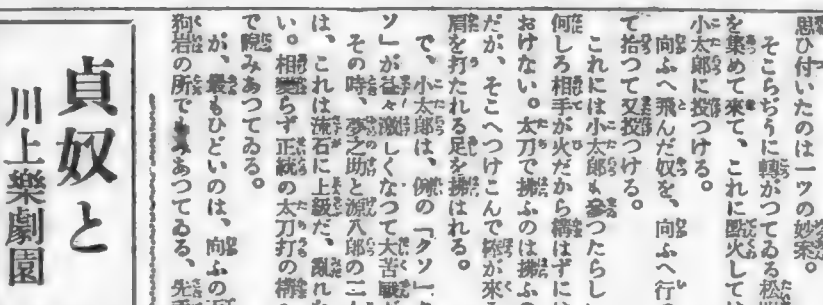 思ひ付いたのは一ツの妙案。
そこらぢうに轉がつてゐる松
を集めて來て、これに點火して
小太郎に投つける。
向ふへ飛んだ奴を、向ふへ行
て拾つて又投つける。
これには小太郎も參つたらし
何しろ相手が火だから構はずに
おけない。太刀で拂ふのは拂ふ
だが、そこへつけこんで棒が來
肩を打たれる足を拂はれる。
で、小太郎は、例の「クソ」
ソ」が益々激しくなつて大苦戰
その時、夢之助と源八郎の二
は、これは流石に上級だ、亂れ
い。相變らず正統の太刀打の
で睨みあつてゐる。
が、最もひどいのは、向ふの
狗岩の所でもみあつてゐる、先
貞奴と
川上樂劇園